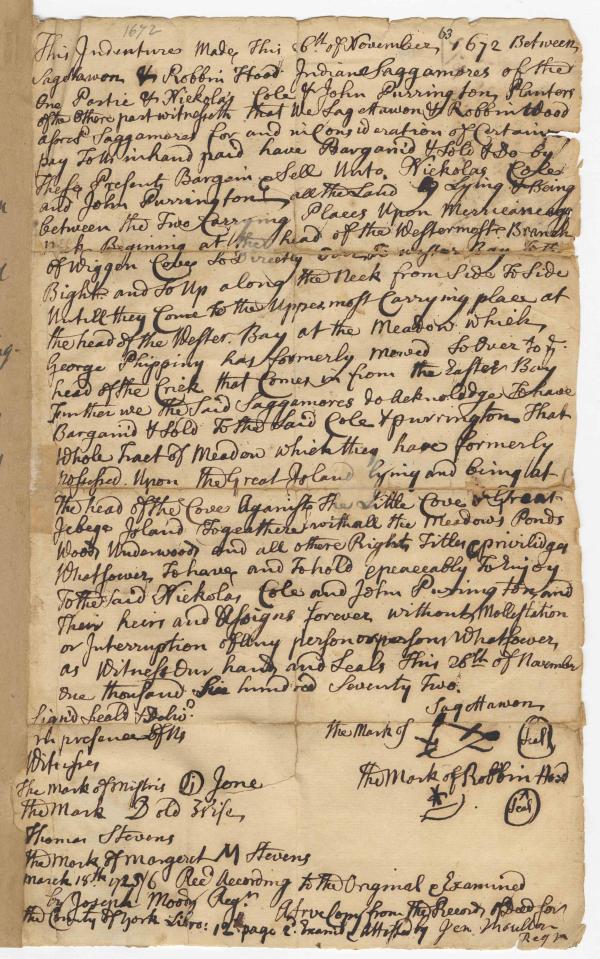 1672
63
This Indenture Made This 6th of November 1672 Between
Sagettawon & Robbin Hood Indian Saggamores of the
One Partie & Nickolas Cole & John Purrington Planters
of the Othere part witneseth that We Sagettawon & Robbin Wood
aforesd Saggamores for and in Consideration of Certain
pay To Us in hand paid have Barganid & Sold & Do by
These Present Bargain & Sell Unto Nickolas Cole
and John Purrington all the Land Lying & Being
between the Two Carrying Places Upon Merricaneage
neck Begining at the head of the Westermost Branch
of Wiggen Cove So Directly Wester Bay To the
Bight and So Up along the Neck from Side To Side
Untill they Come to the Uppermost Carrying place at
the head of the Wester Bay at the Meadow which
George Phippiny has formerly mowed So Over to ye
head of the Crick that Comes in from the Easter Bay
Further we the Said Saggamores do Acknolidge To have
Barganid & Sold To the Said Cole & purrington That
Whole Tract of Meadow which they have formerly
possessed Upon the Great Island lying and being at
the head of the Cove Against the Little Cove & Great
Jebege Island Togeathere with all the Meadows Ponds
Woods Underwoods and all othere Rights Titles & priviliges
Whatsower To have and To hold & peaceably To Enjoy
To the Said Nickolas Cole and John Purington and
Their heirs and Assigns forever without Mollestation
or Interruption of Any person or persons Whatsower
as Witness Our hands and Seals This 26th of November
One thousand Six hundred Seventy Two.
Signd Seald & Delivd
In presence of Us
Witneses
Sagettawon
the Mark of
Seal
The Mark of Robbin Hood
Seal
The mark of Mistris Jone
the Mark D old Wife
Thomas Stevens
the Mark of Margeret M Stevens
March 18th 1725/6 Recd According to the Original & Examined
by Joseph Moody Regr
A true Copy from the Records of Deed for
the County of York Libro: 12th page 2. Examd & attested by Jer. Moulton
Regr